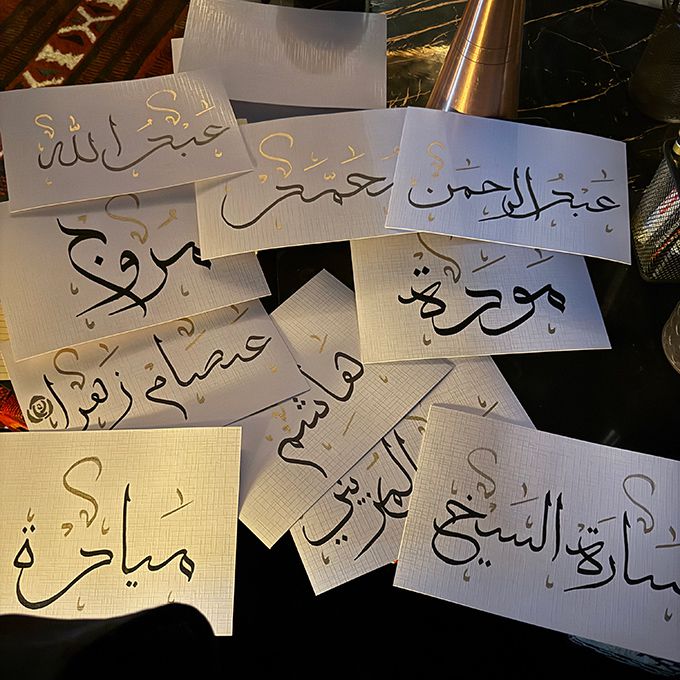 عبدالله
محمد
عبدالرحمن
مروج
مودة
عصام زهرا
هاشم
سارة الشيخ
ميادة